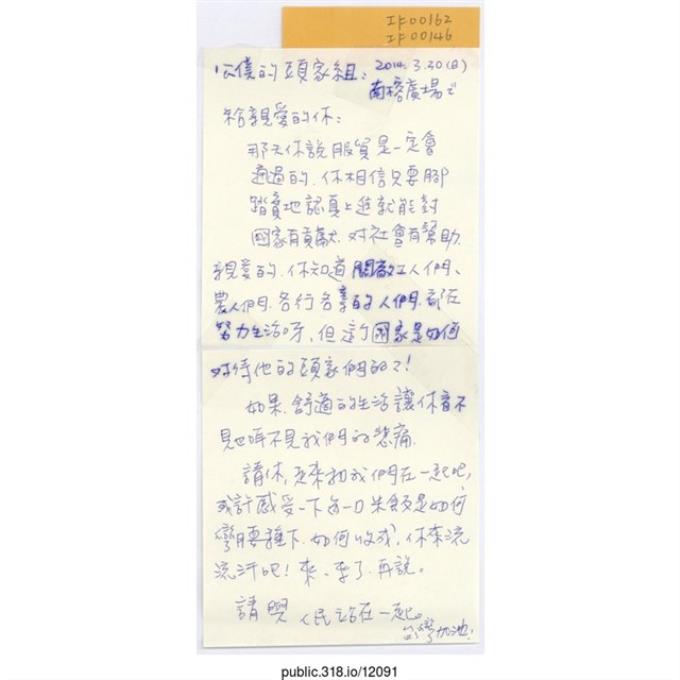 IF00162
IF00146
公僕的頭家組: 2014.3.30(日)
南榕廣場
給親愛的你:
那天你說服貿是一定會
通過的.你相信只要腳
踏實地認真上進就能對
國家有貢獻.對社會有幫助.
親愛的.你知道關廠工人們、
農人們.各行各業的人們.都在
努力生活呀、但這個國家是如何
對待他的頭家們的?!
如果.舒適的生活讓你看不
見也呼不見我們的悲痛.
請你,走來和我們在一起吧,
或許感受一下每一口米飯是如何
彎腰種下.如何收成,你來流
流汗吧!來、來了.再說。
請與人民站在一起。
台灣加油!
public.318.io/12091